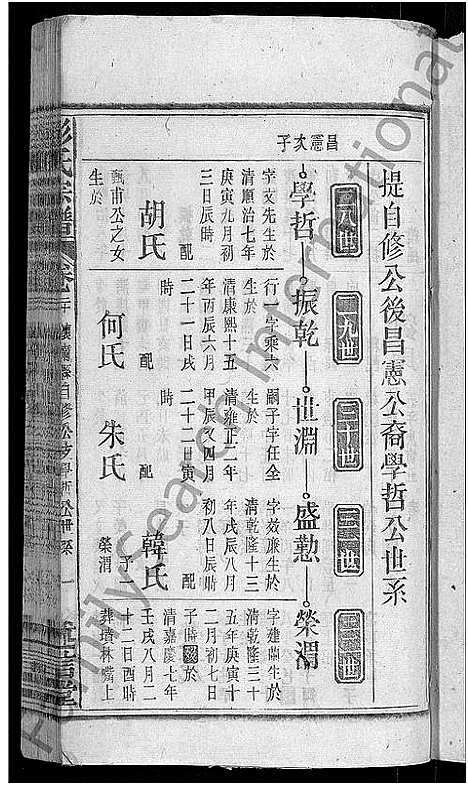 堤自修公後昌憲公裔學哲公世系
二八世
二九世
三十世
三一世
三二世
昌憲次子
學哲
振乾
世淵
盛懃
榮渭
字文先生於
清順治七年
庚寅九月初
三日辰時
配
胡氏
甑甫公之女
生於
行一字乘六
生於
清康熙十五
年丙辰六月
二十一日戌
時
配
何氏
嗣子字任全
生於
清雍正二年
甲辰又四月
二十二日寅
時
配
朱氏
字效廉生於
清乾隆十三
年戊辰八月
初八日辰時
配
韓氏
子二
榮渭
字建蘭生於
清乾隆三十
五年庚寅十
二月初七日
子時歿於
清嘉慶七年
壬戌八月二
十二日酉時
葬墳林嘴上
彭氏宗譜
Family Search International